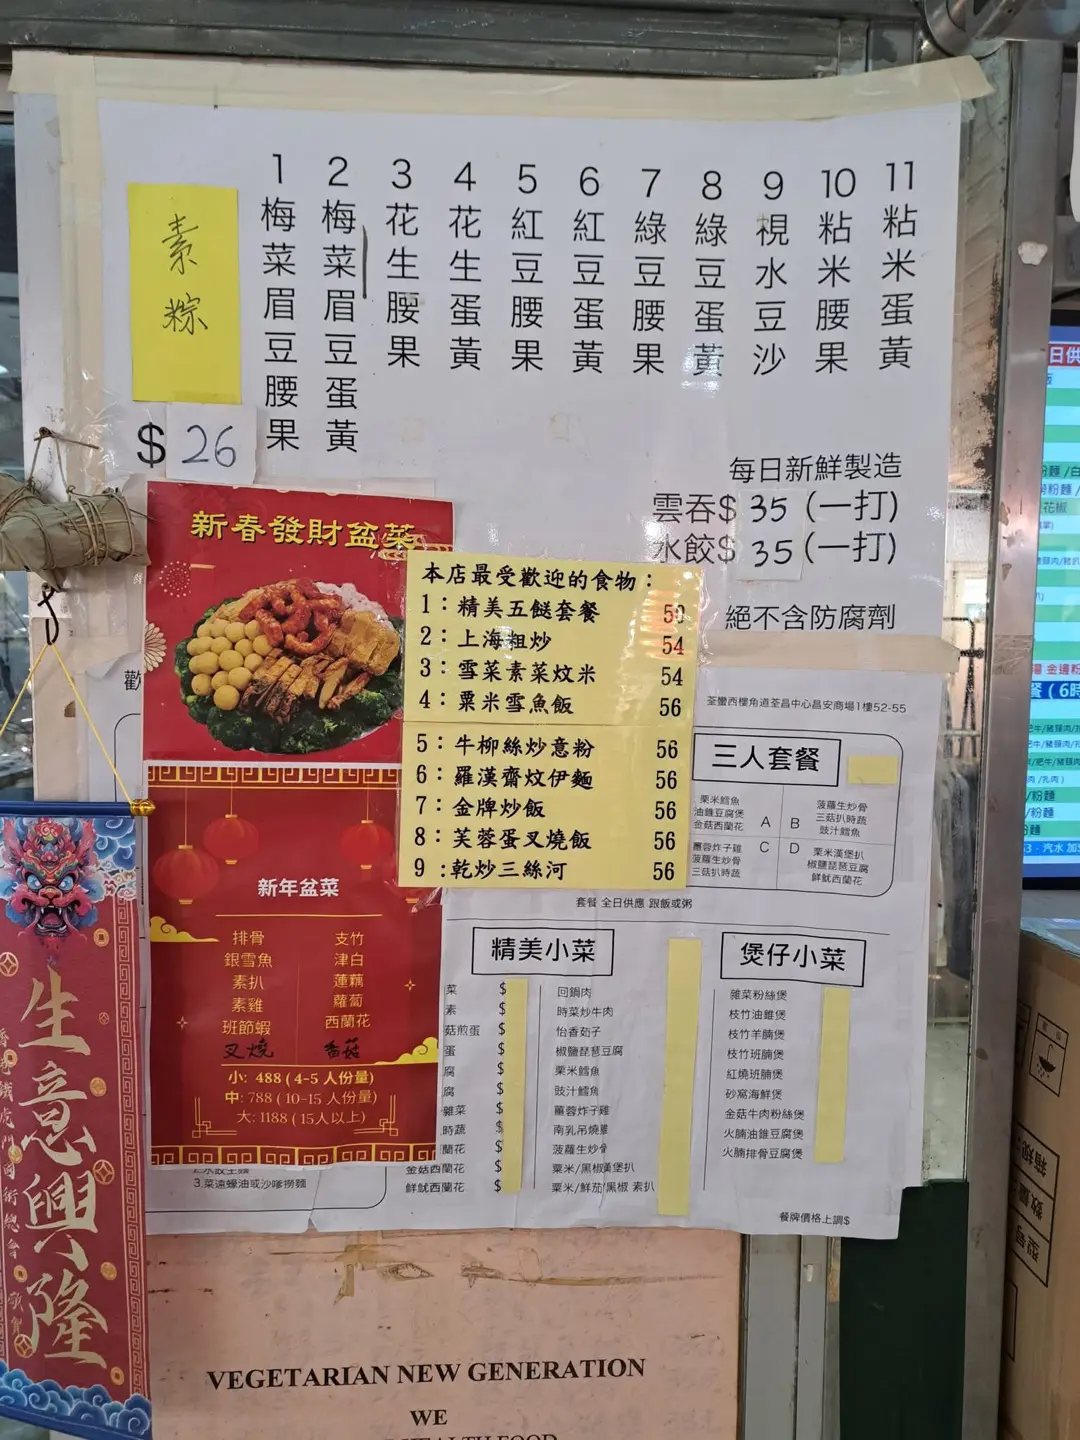 素粽
$26
1 梅菜眉豆腰果
2 梅菜眉豆蛋黃
3 花生腰果
4 花生蛋黃
5 紅豆腰果
6 紅豆蛋黃
7 綠豆腰果
8 綠豆蛋黃
9 視水豆沙
10 粘米腰果
11 粘米蛋黃
每日新鮮製造
雲吞$35(一打)
水餃$35(一打)
絕不含防腐劑
新春發財盆菜
新年盆菜
排骨 支竹
銀雪魚 津白
素扒 蓮藕
素雞 蘿蔔
班節蝦 西蘭花
叉燒 香菇
小: 488 (4-5 人份量)
中: 788 (10-15 人份量)
大: 1188 (15人以上)
本店最受歡迎的食物：
1：精美五餸套餐 50
2：上海粗炒 54
3：雪菜素菜炆米 54
4：粟米雪魚飯 56
5：牛柳絲炒意粉 56
6：羅漢齋炆伊麵 56
7：金牌炒飯 56
8：芙蓉蛋叉燒飯 56
9：乾炒三絲河 56
歡
荃灣西樓角道荃昌中心昌安商場1樓52-55
三人套餐
A
栗米鱈魚
油錐豆腐煲
金菇西蘭花
B
菠蘿生炒骨
三菇扒時蔬
豉汁鱈魚
C
薑蓉炸子雞
菠蘿生炒骨
三菇扒時蔬
D
栗米漢堡扒
椒鹽琵琶豆腐
鮮魷西蘭花
套餐 全日供應 跟飯或粥
精美小菜
菜 $
素 $
菇煎蛋 $
蛋 $
腐 $
腐 $
雜菜 $
時蔬 $
蘭花 $
金菇西蘭花 $
鮮魷西蘭花 $
回鍋肉
時菜炒牛肉
怡香茄子
椒鹽琵琶豆腐
栗米鱈魚
豉汁鱈魚
薑蓉炸子雞
南乳吊燒雞
菠蘿生炒骨
粟米/黑椒漢堡扒
粟米/鮮茄/黑椒 素扒
煲仔小菜
雜菜粉絲煲
枝竹油錐煲
枝竹羊腩煲
枝竹班腩煲
紅燒班腩煲
砂窩海鮮煲
金菇牛肉粉絲煲
火腩油錐豆腐煲
火腩排骨豆腐煲
餐牌價格上調$
3.菜遠蠔油或沙嗲撈麵
生意興隆
VEGETARIAN NEW GENERATION
WE
HEALTH FOOD